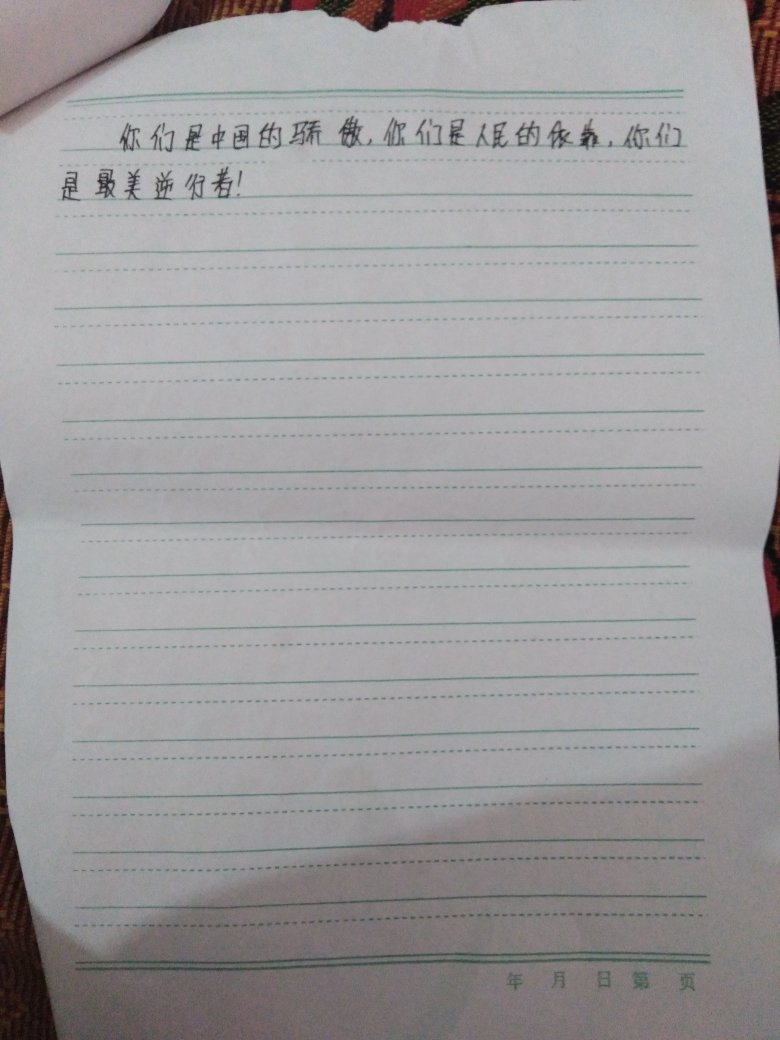 你们是中国的骄傲,你们是人民的依靠,你们
是最美逆行者!
年 月 日 第 页